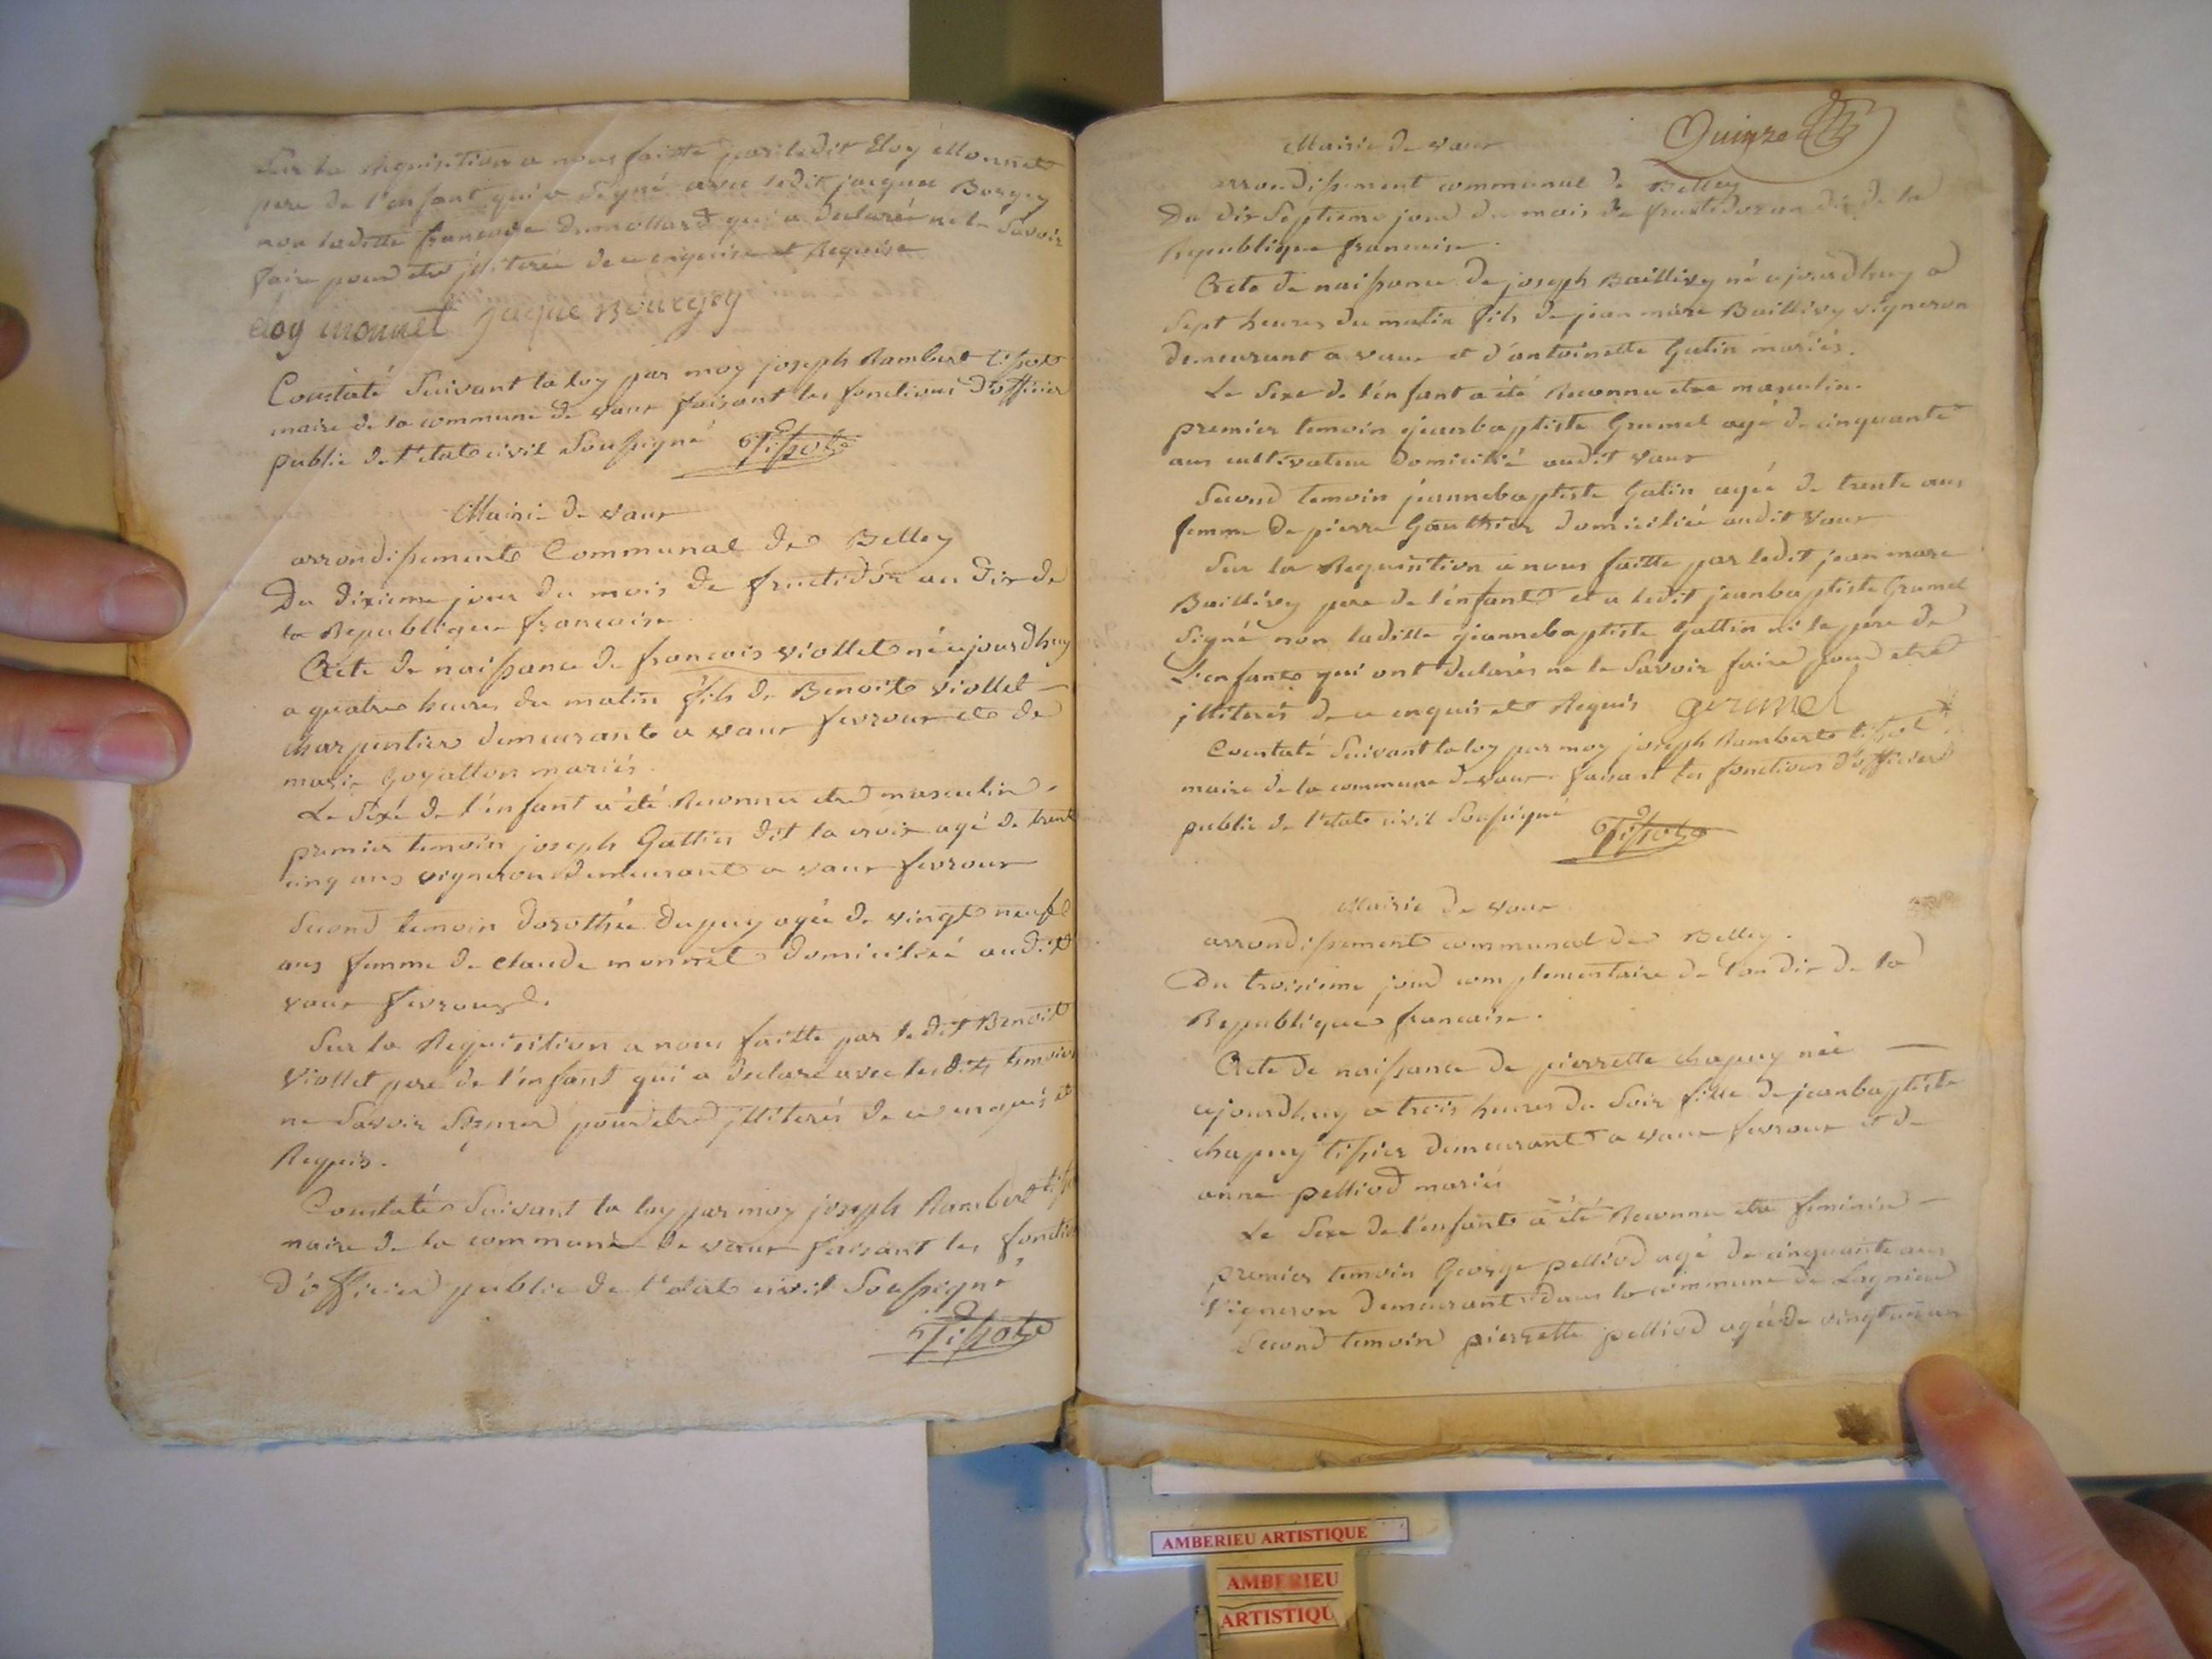 Sur la Requisition a nous faitte par ledit Eloy Monnet
pere de l'enfant qui a signé avec ledit jacque Borgey
non laditte francoise Dumollard qui a declarée ne le Savoir
faire pour etre jlliterée de ce enquise et Requise
eloy monnet jaque Bourgey
Constaté Suivant la loy par moy joseph Rambert tissot
maire de la commune de vaux faisant les fonctions d'officier
public de l'etat civil Soussigné Tissot
Mairie de vaux
arrondissement Communal de Belley
Du dixieme jour du mois de fructidor an dix de
la Republique francoise
Acte de naissance de francois viollet né ajourdhuy
a quatre heures du matin fils de Benoit viollet
charpentier demeurant a vaux fevroux et de
marie mariés.
Le Sexe de l'enfant a été Reconnu etre masculin
premier temoin joseph Gattier dit la croix agé de trente
cinq ans vigneron demeurant a vaux fevroux
Second temoin dorothée dupuy agée de vingt neuf
ans femme de claude monnet domiciliée audit
vaux fevroux.
Sur la Requisition a nous faitte par ledit Benoit
Viollet pere de l'enfant qui a declaré avec lesdits temoins
ne Savoir Signer pour etre jlliterés de ce enquis et
Requis.
Constaté Suivant la loy par moy joseph Rambert
maire de la commune de vaux faisant les fonctions
d'officier public de l'etat civil Soussigné
Tissot
Quinze
Mairie de vaux
arrondissement communal de Belley
Du dix Septieme jour du mois de fructidor an dix de la
Republique francoise.
Acte de naissance de joseph Baillivy né ajourdhuy a
Sept heures du matin fils de jean marie Baillivy vigneron
demeurant a vaux et d'antoinette Gatin mariés.
Le Sexe de l'enfant a été Reconnu etre masculin.
premier temoin jeanbaptiste Grumel agé de cinquante
ans cultivateur domicilié audit vaux
Second temoin jeannebaptiste Gatin agée de trente ans
femme de pierre Gauthier domiciliée audit Vaux
Sur la Requisition a nous faitte par ledit jean marie
Baillivy pere de l'enfant et a ledit jeanbaptiste Grumel
Signé non laditte jeannebaptiste Gattin ni le pere de
L'enfant qui ont declarés ne le Savoir faire pour etre
jlliterés de ce enquis et Requis grumel
Constaté Suivant la loy par moy joseph Rambert tissot
maire de la commune de vaux faisant les fonctions d'officier
public de l'etat civil Soussigné
Tissot
Mairie de vaux
arrondissement communal de Belley.
Du troisieme jour complementaire de l'an dix de la
Republique francoise.
Acte de naissance de pierrette chapuy née
ajourdhuy a trois heures du Soir fille de jeanbaptiste
chapuy tissier demeurant a vaux fevroux et de
anne pelliod mariés
Le Sexe de l'enfant a été Reconnu etre feminin
premier temoin George pelliod agé de cinquante ans
Vigneron demeurant dans la commune de Lagnieu
Second temoin pierrette pelliod agée de vingt
AMBERIEU ARTISTIQUE
AMBERIEU
ARTISTIQU